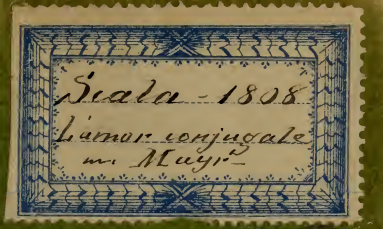 Scala - 1808
L'amor conjugale
m. Mayr